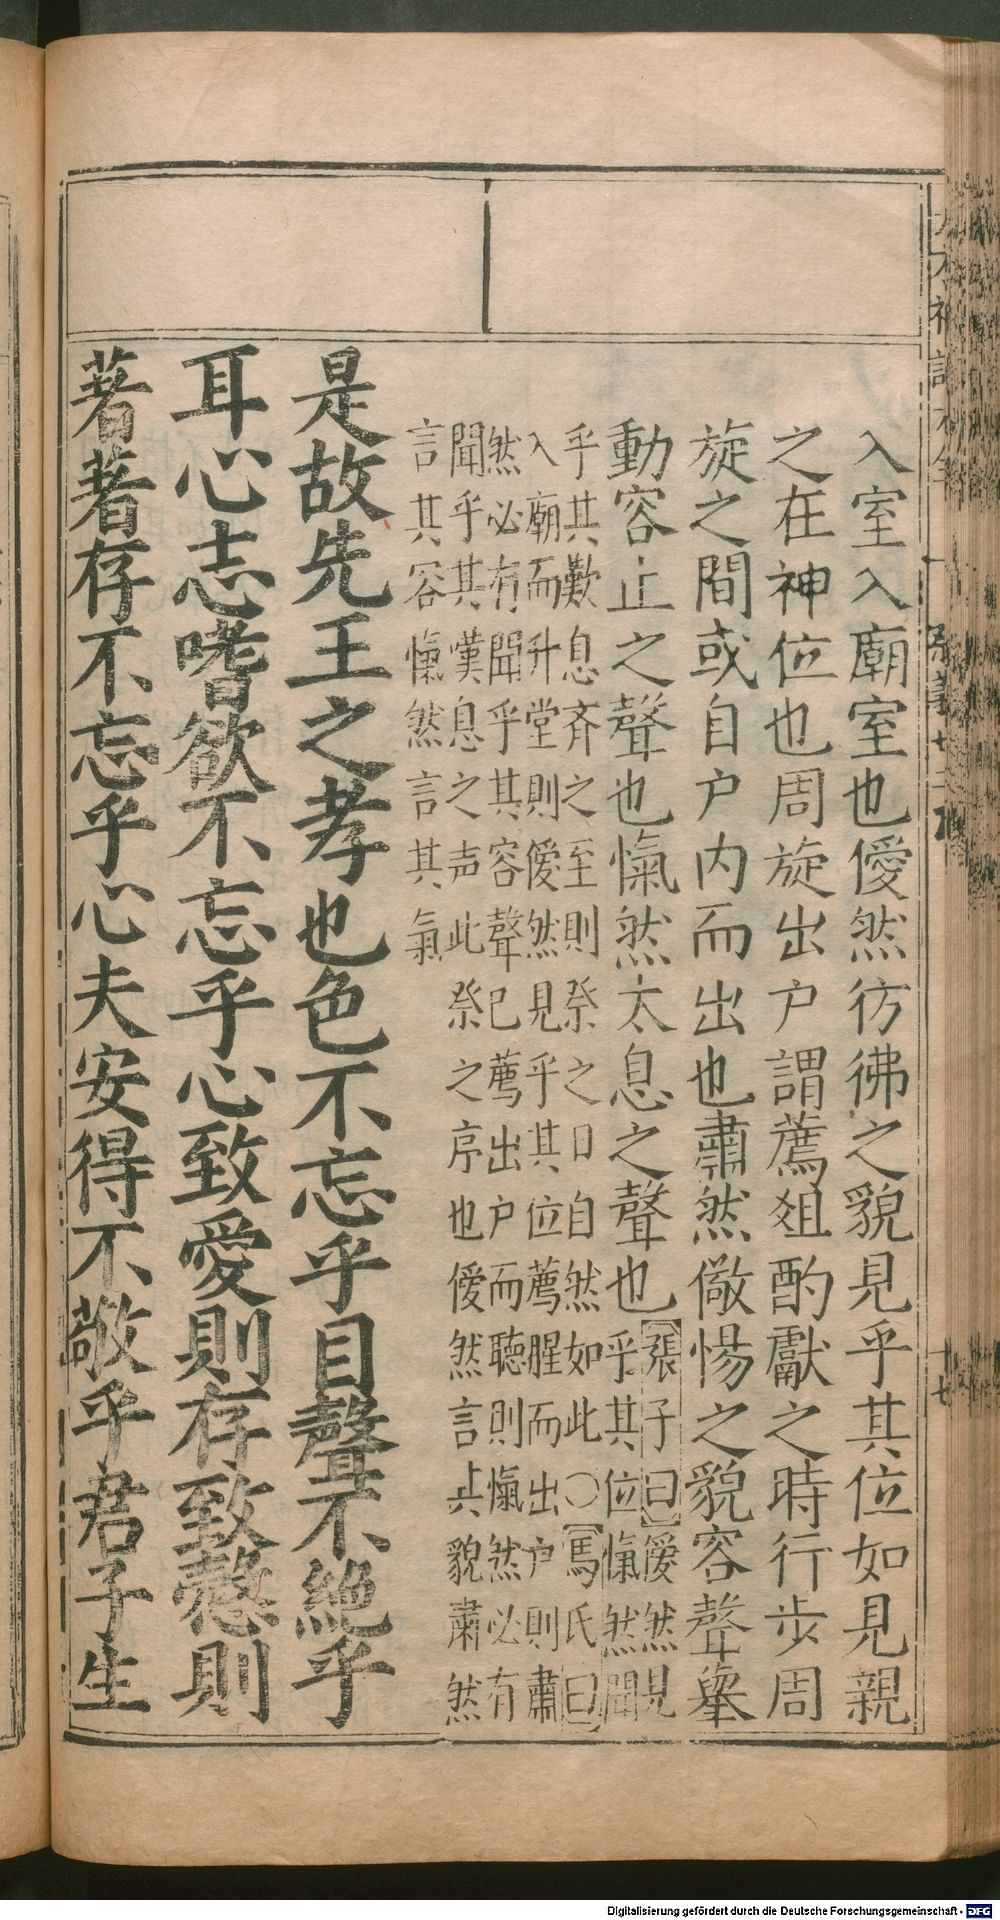 入室入廟室也僾然彷彿之貌見乎其位如見親
之在神位也周旋出户謂薦爼酌獻之時行步周
旋之間或自户内而出也肅然儆惕之貌容聲舉
動容止之聲也愾然太息之聲也
張子曰僾然見
乎其位愾然聞
乎其歎息齊之至則祭之日自然如此○馬氏曰
入廟而升堂則僾然見乎其位薦腥而出户則肅
然必有聞乎其容聲已薦出户而聽則愾然必有
聞乎其嘆息之声此祭之序也僾然言其貌肅然
言其容愾然言其氣
是故先王之孝也色不忘乎目聲不絶乎
耳心志嗜欲不忘乎心致愛則存致慤則
著著存不忘乎心夫安得不敬乎君子生
十七
Digitalisierung gefördert durch die Deutsche Forschungsgemeinschaft - DFG